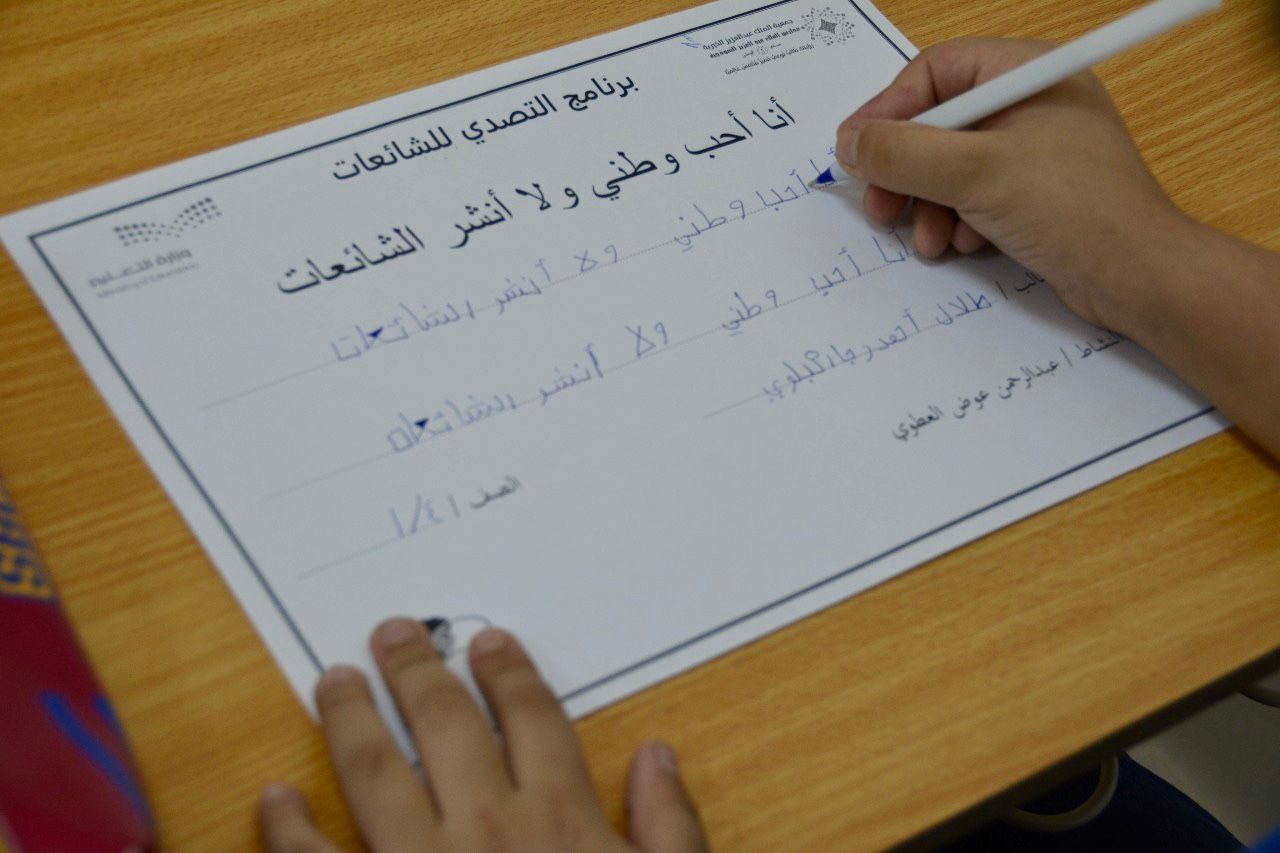 جمعية الملك عبدالعزيز الخيرية
وزارة التعليم
Ministry of Education
برنامج التصدي للشائعات
أنا أحب وطني ولا أنشر الشائعات
أنا أحب وطني ولا أنشر الشائعات
أنا أحب وطني ولا أنشر الشائعات
طلال
النشاط / عبدالرحمن عوض العطوي
الصف / ٤/١